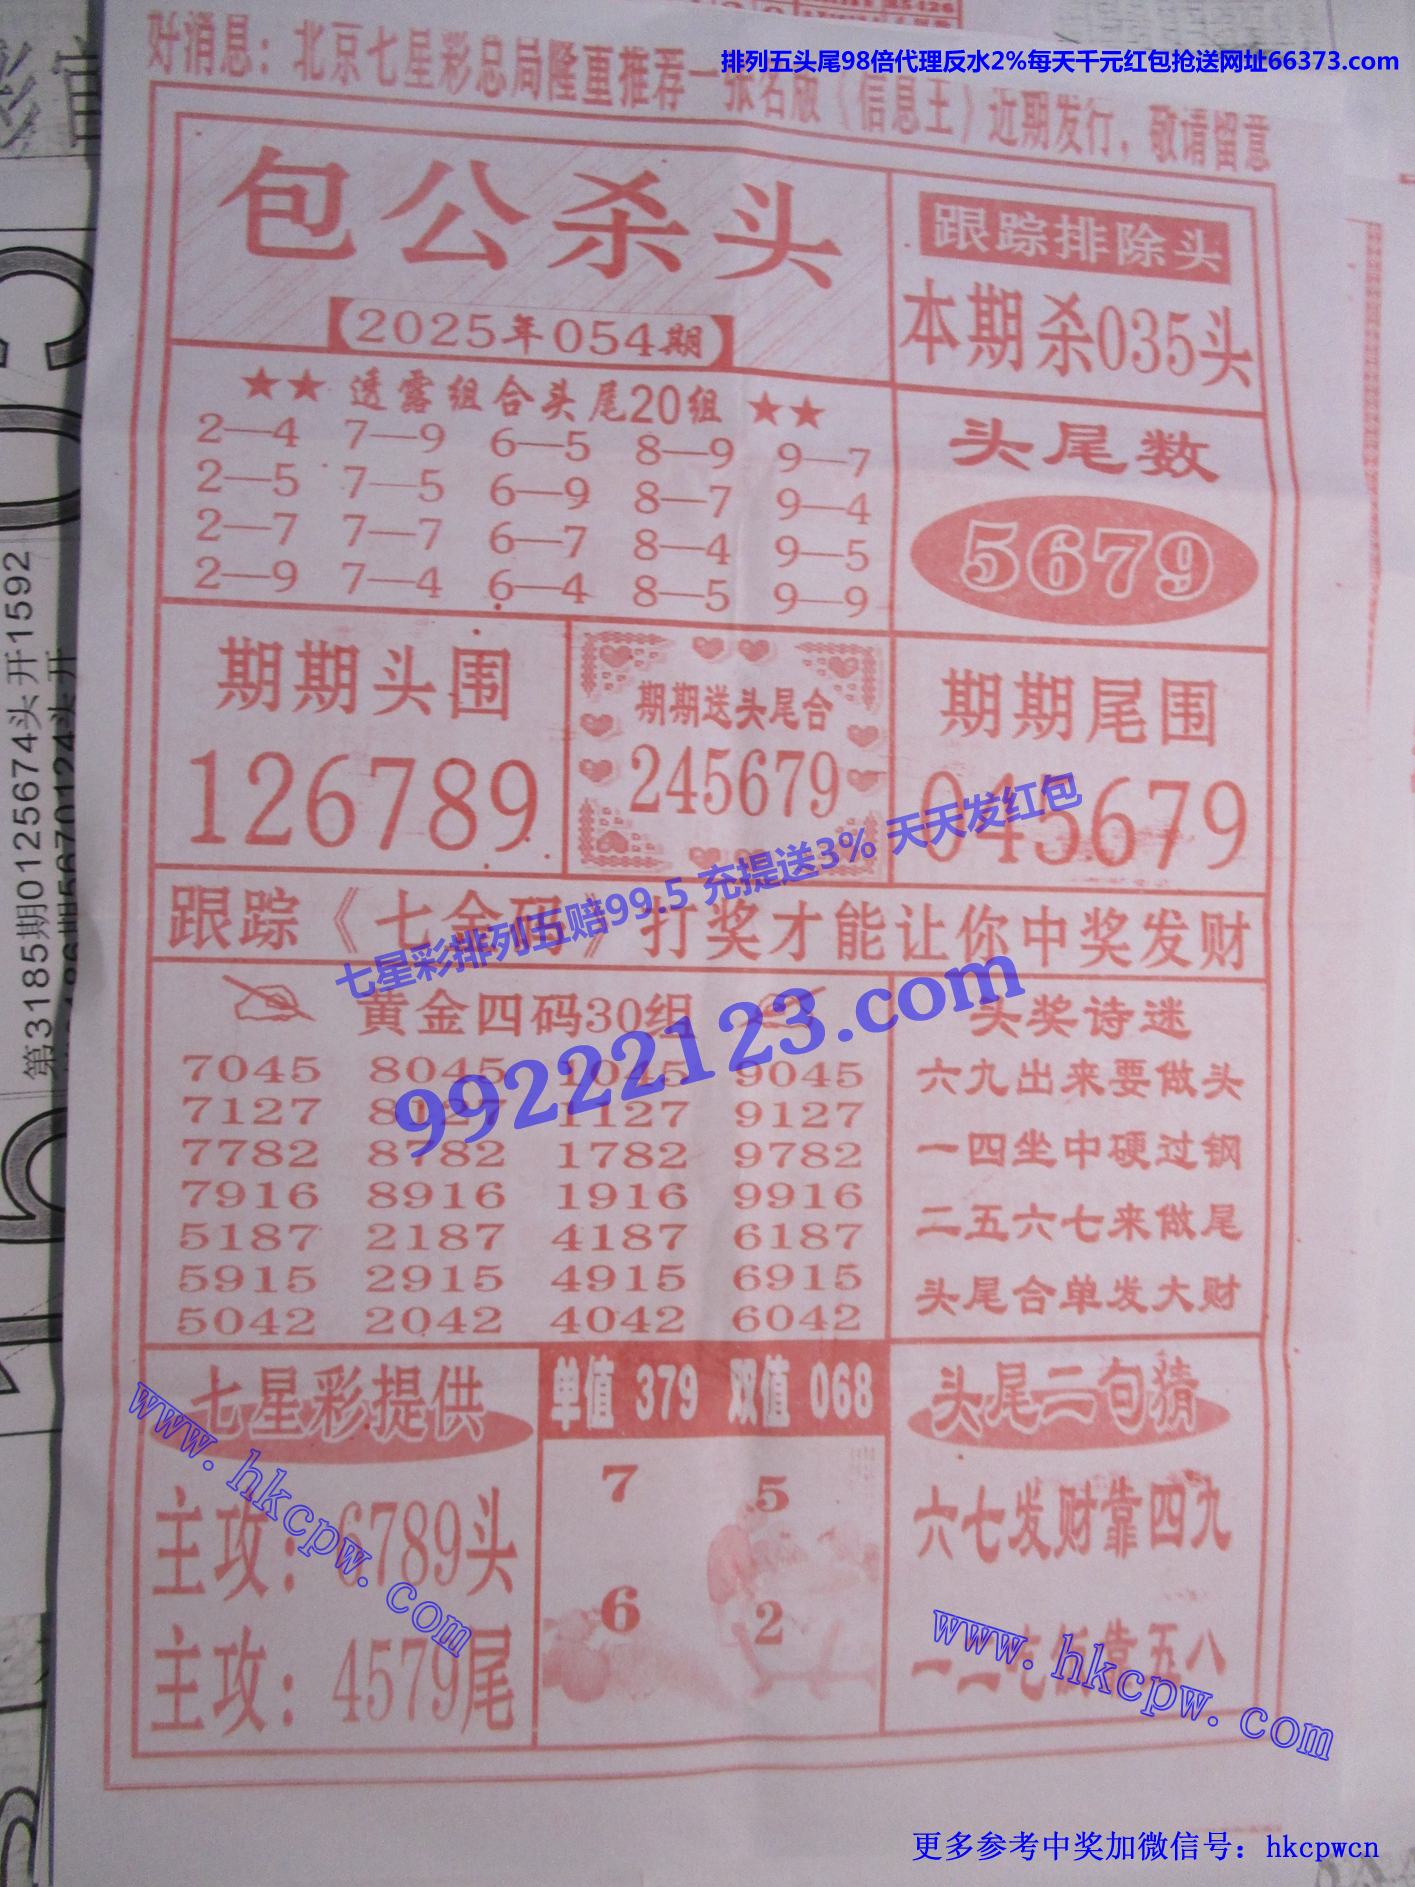 排列五头尾98倍代理反水2%每天千元红包抢送网址66373.com
好消息：北京七星彩总局隆重推荐一张名版《信息王》近期发行，敬请留意
包公杀头
【2025年054期】
跟踪排除头
本期杀035头
★★ 透露组合头尾20组 ★★
2—4 7—9 6—5 8—9 9—7
2—5 7—5 6—9 8—7 9—4
2—7 7—7 6—7 8—4 9—5
2—9 7—4 6—4 8—5 9—9
头尾数
5679
期期头围
126789
期期送头尾合
245679
期期尾围
045679
跟踪《七金码》打奖才能让你中奖发财
七星彩排列五赔99.5 充提送3% 天天发红包
99222123.com
黄金四码30组
7045 8045 1045 9045
7127 8127 1127 9127
7782 8782 1782 9782
7916 8916 1916 9916
5187 2187 4187 6187
5915 2915 4915 6915
5042 2042 4042 6042
头奖诗迷
六九出来要做头
一四坐中硬过钢
二五六七来做尾
头尾合单发大财
七星彩提供
主攻：6789头
主攻：4579尾
www.hkcpw.com
单值 379 双值 068
7 5
6 2
头尾二句猜
六七发财靠四九
五八
www.hkcpw.com
第3185期0125674头开1592
期5670124头开
更多参考中奖加微信号：hkcpwcn